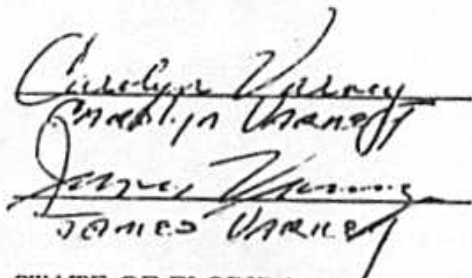 Carolyn Varney
CAROLYN VARNEY
James Varney
JAMES VARNEY
STATE OF FLORIDA